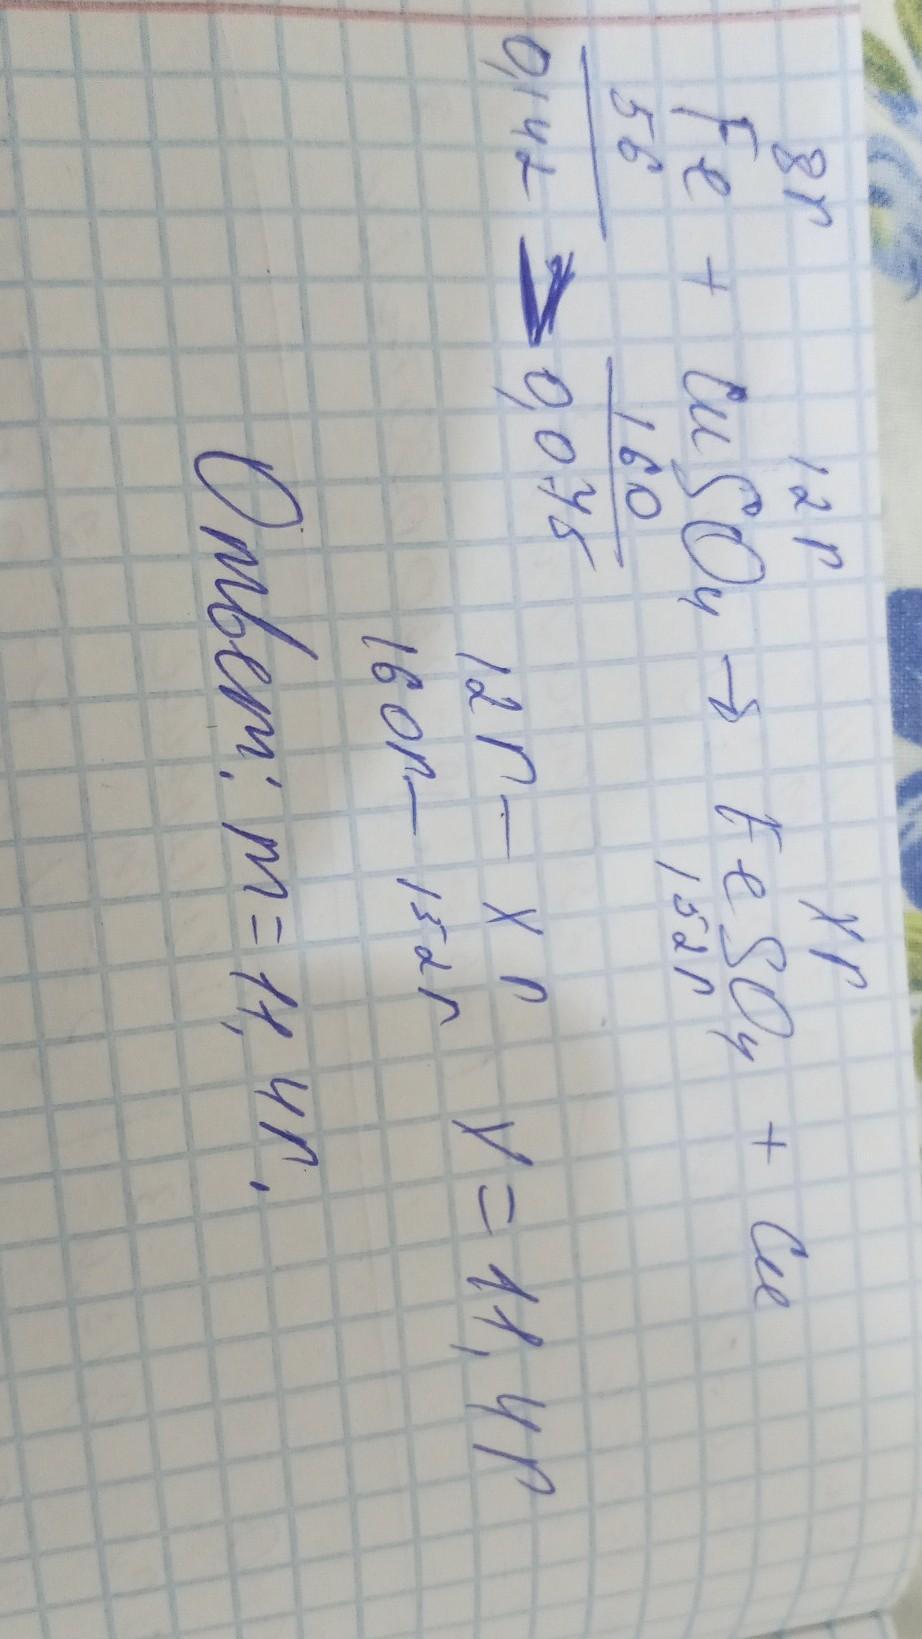 8г 12г хг
Fe + CuSO4 → FeSO4 + Cu
56 160 152г
0,142 > 0,075
12г – хг х = 11,4г
160г – 152г
Ответ: m = 11,4г.